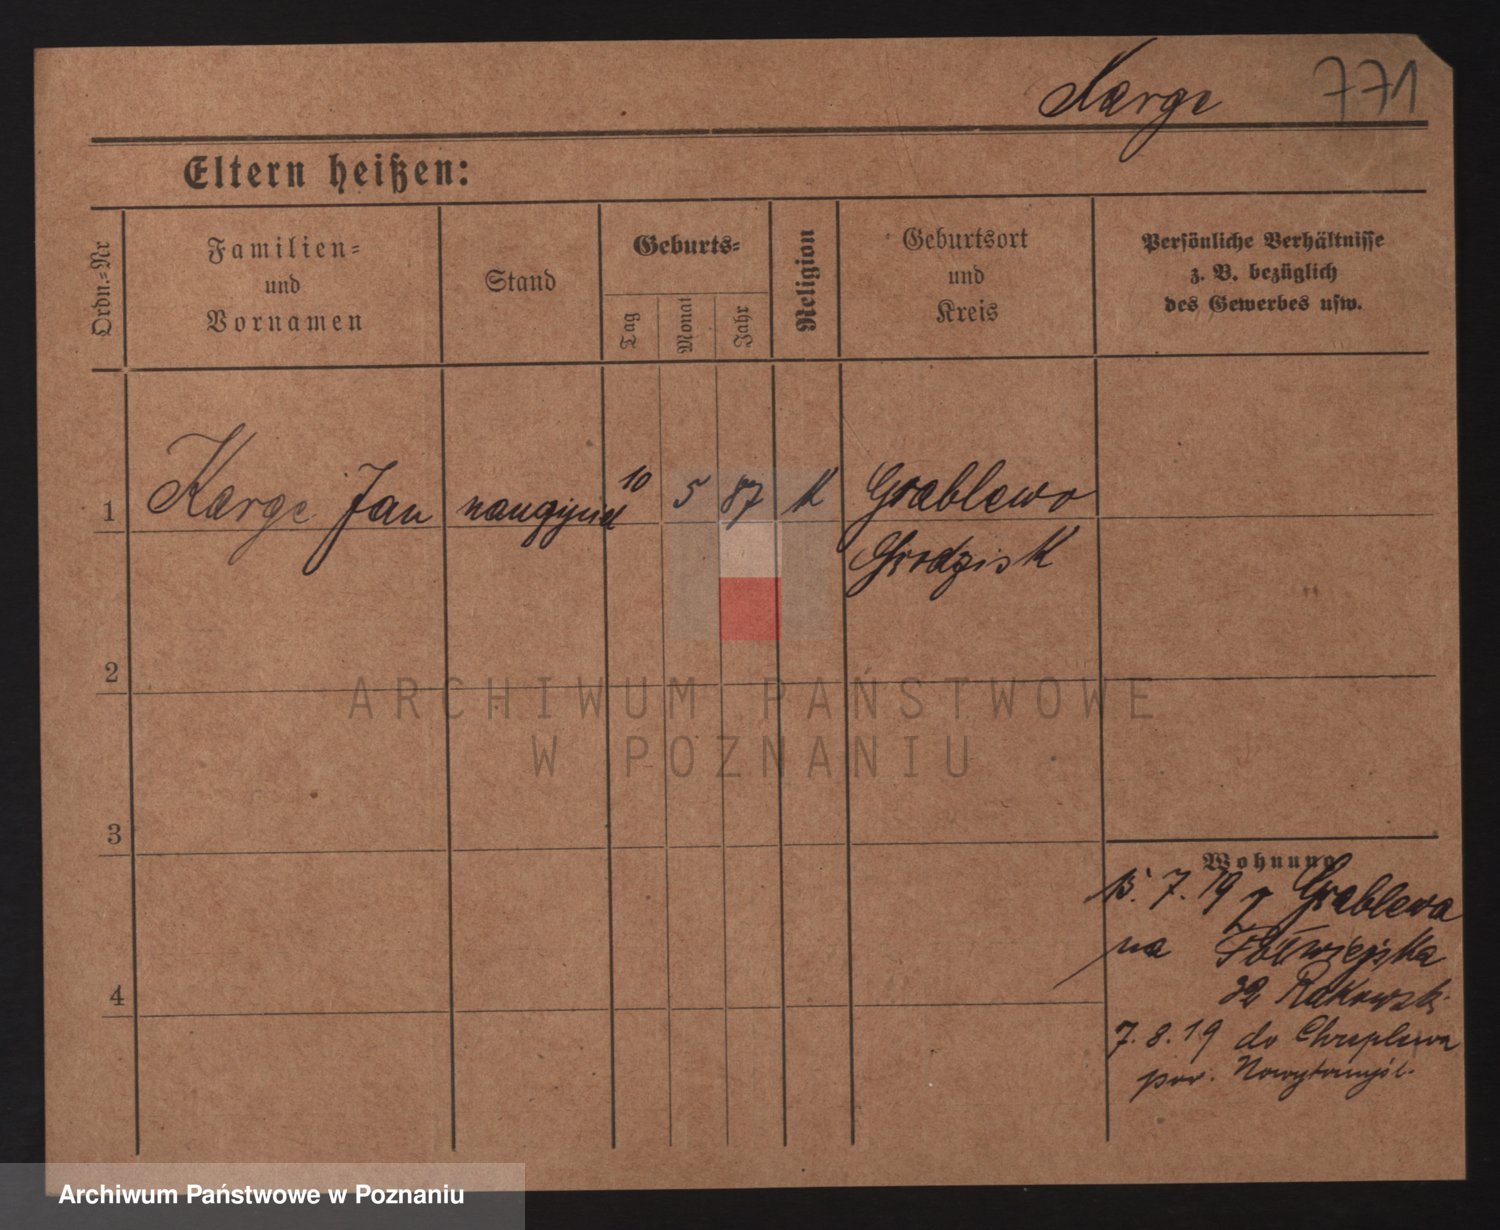 Karge 771
Eltern heißen:
Ordn.=Nr
Familien=
und
Vornamen
Stand
Geburts=
Tag
Monat
Jahr
Religion
Geburtsort
und
Kreis
Persönliche Verhältnisse
z. B. bezüglich
des Gewerbes usw.
1 Karge Jan 10 5 87 K Grablewo
Grodzisk
2
3
4
Wohnung
15. 7. 19 z Grablewa
na Półwiejska
32 Rakowski
7. 8. 19 do Chraplewa
pow. Nowytomyśl.
ARCHIWUM PAŃSTWOWE
W POZNANIU
Archiwum Państwowe w Poznaniu